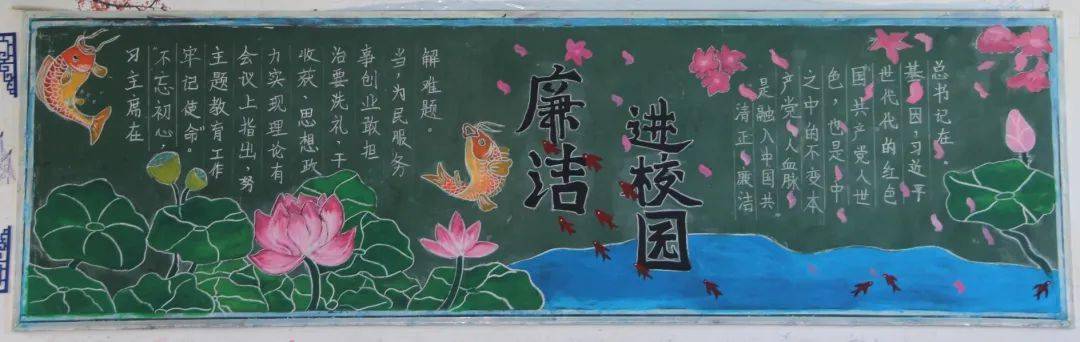 廉洁
进校园
习主席在
“不忘初心、
牢记使命”
主题教育工作
会议上指出,努
力实现理论有
收获、思想政
治要洗礼、干
事创业敢担
当,为民服务
解难题。
清正廉洁
是融入中国共
产党人血脉
之中的不变本
色,也是中
国共产党人世
世代代的红色
基因,习近平
总书记在.